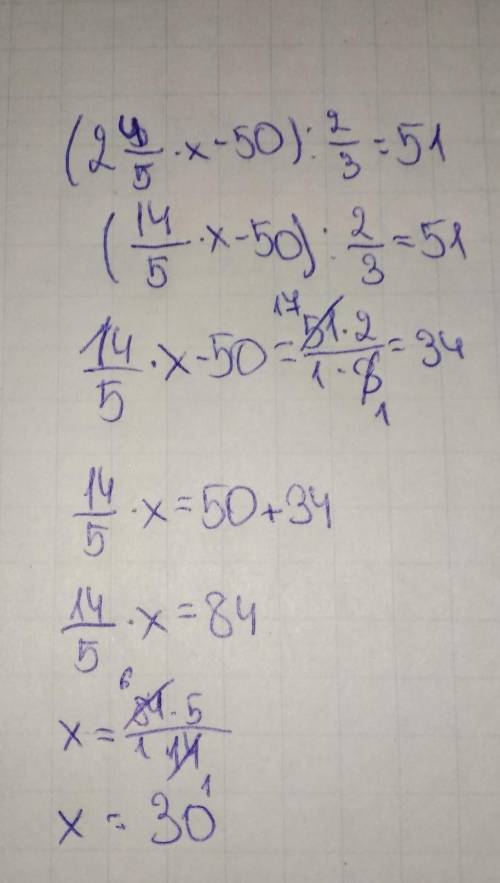 (2 4/5 · x - 50) : 2/3 = 51
(14/5 · x - 50) : 2/3 = 51
14/5 · x - 50 = 17 51 · 2 / 1 · 3 1 = 34
14/5 · x = 50 + 34
14/5 · x = 84
x = 6 84 · 5 / 1 · 14 1
x = 30